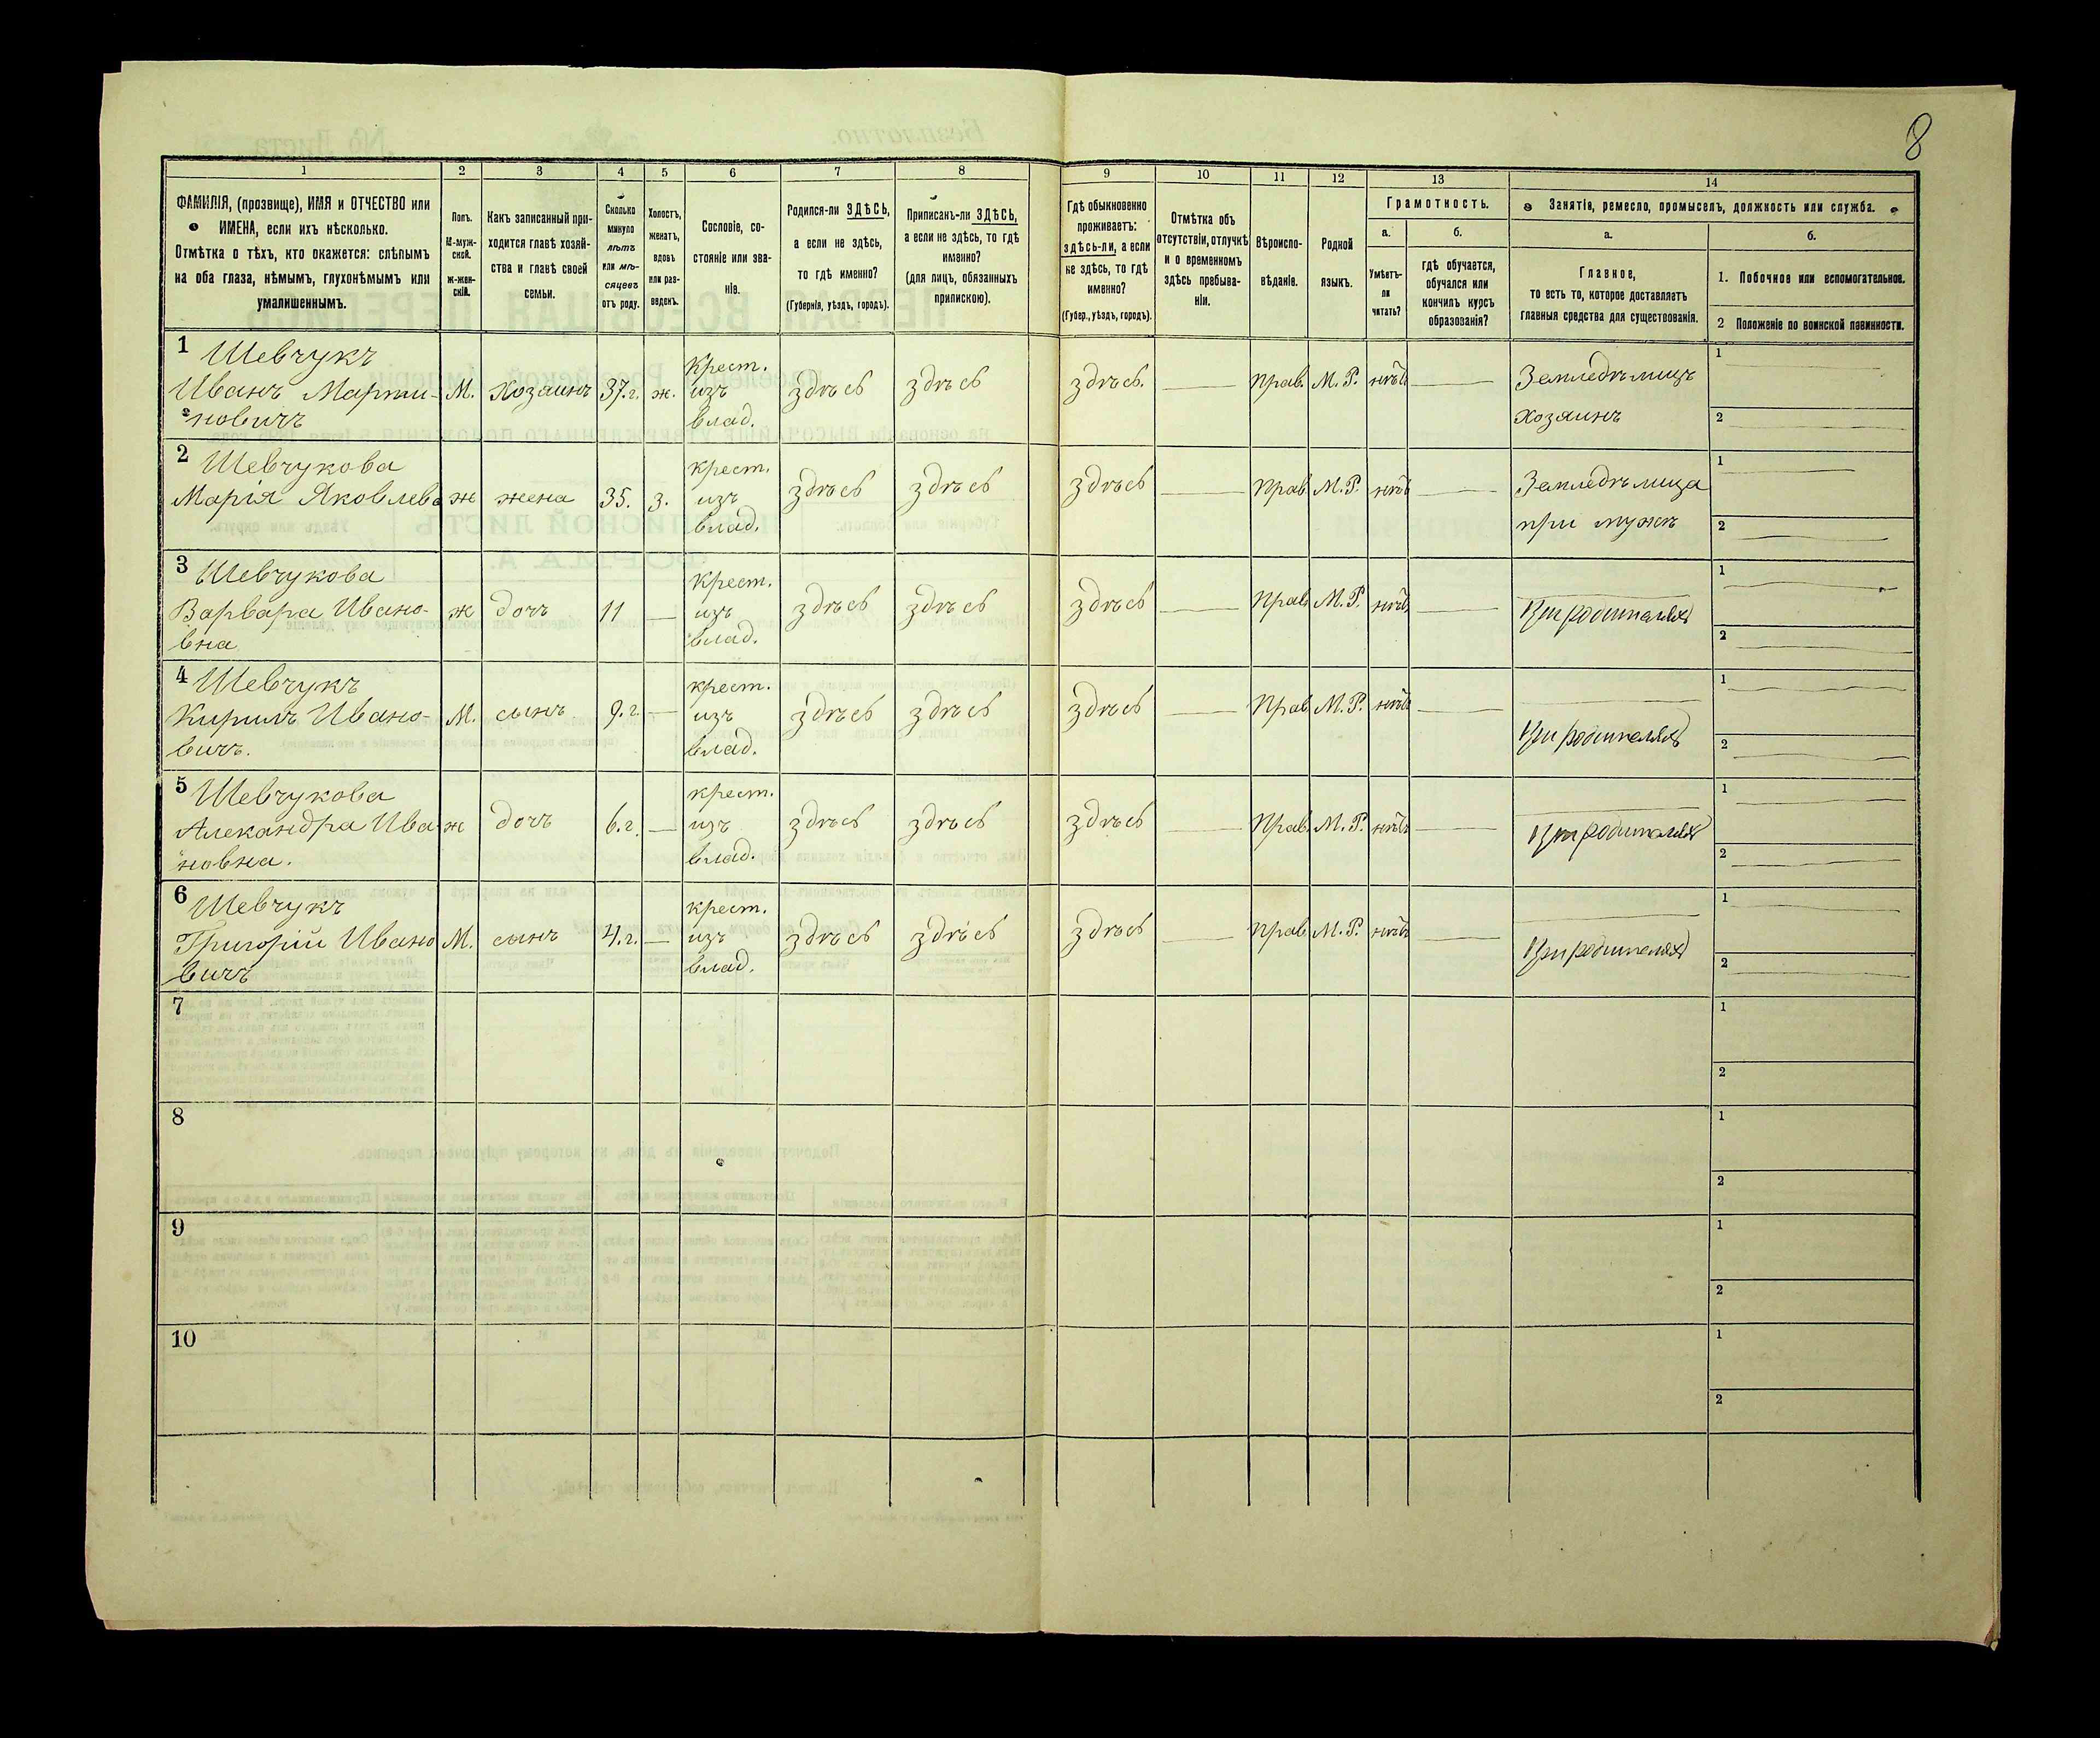 8
1 2 3 4 5 6 7 8 9 10 11 12 13 14
ФАМИЛІЯ, (прозвище), ИМЯ и ОТЧЕСТВО или
ИМЕНА, если ихъ нѣсколько.
Отмѣтка о тѣхъ, кто окажется: слѣпымъ
на оба глаза, нѣмымъ, глухонѣмымъ или
умалишеннымъ.
Полъ.
М-муж-
ской.
ж-жен-
скій.
Какъ записанный при-
ходится главѣ хозяй-
ства и главѣ своей
семьи.
Сколько
минуло
лѣтъ
или мѣ-
сяцевъ
отъ роду.
Холостъ,
женатъ,
вдовъ
или раз-
веденъ.
Сословіе, со-
стояніе или зва-
ніе.
Родился-ли ЗДѢСЬ,
а если не здѣсь,
то гдѣ именно?
(Губернія, уѣздъ, городъ).
Приписанъ-ли ЗДѢСЬ,
а если не здѣсь, то гдѣ
именно?
(для лицъ, обязанныхъ
припискою).
Гдѣ обыкновенно
проживаетъ:
здѣсь-ли, а если
не здѣсь, то гдѣ
именно?
(Губер., уѣздъ, городъ).
Отмѣтка объ
отсутствіи, отлучкѣ
и о временномъ
здѣсь пребыва-
ніи.
Вѣроиспо-
вѣданіе.
Родной
языкъ.
Грамотность.
а.
Умѣетъ-
ли
читать?
б.
гдѣ обучается,
обучался или
кончилъ курсъ
образованія?
Занятіе, ремесло, промыселъ, должность или служба.
а.
Главное,
то есть то, которое доставляетъ
главныя средства для существованія.
б.
1. Побочное или вспомогательное.
2 Положеніе по воинской повинности.
1 Шевчукъ
Иванъ Марти-
новичъ
М. Хозяинъ 37.г. ж.
Крест.
изъ
влад.
здѣсь здѣсь здѣсь. — прав. М.Р. нѣтъ —
Земледѣлецъ
хозяинъ
1
2
2 Шевчукова
Марія Яковлева
ж жена 35. з.
крест.
изъ
влад.
здѣсь здѣсь здѣсь — прав М.Р. нѣтъ —
Земледѣлица
при мужѣ
1
2
3 Шевчукова
Варвара Ивано-
вна
ж дочь 11 —
Крест.
изъ
влад.
здѣсь здѣсь здѣсь — прав М.Р. нѣтъ —
При родителяхъ
1
2
4 Шевчукъ
Кирилъ Ивано-
вичъ.
М. сынъ 9.г. —
крест.
изъ
влад.
здѣсь здѣсь здѣсь — прав М.Р. нѣтъ —
При родителяхъ
1
2
5 Шевчукова
Александра Ива
новна.
ж дочь 6.г. —
крест.
изъ
влад.
здѣсь здѣсь здѣсь — прав. М.Р. нѣтъ —
При родителяхъ
1
2
6 Шевчукъ
Григорій Ивано
вичъ
М. сынъ 4.г. —
крест.
изъ
влад.
здѣсь здѣсь здѣсь — прав М.Р. нѣтъ —
При родителяхъ
1
2
7
1
2
8
1
2
9
1
2
10
1
2